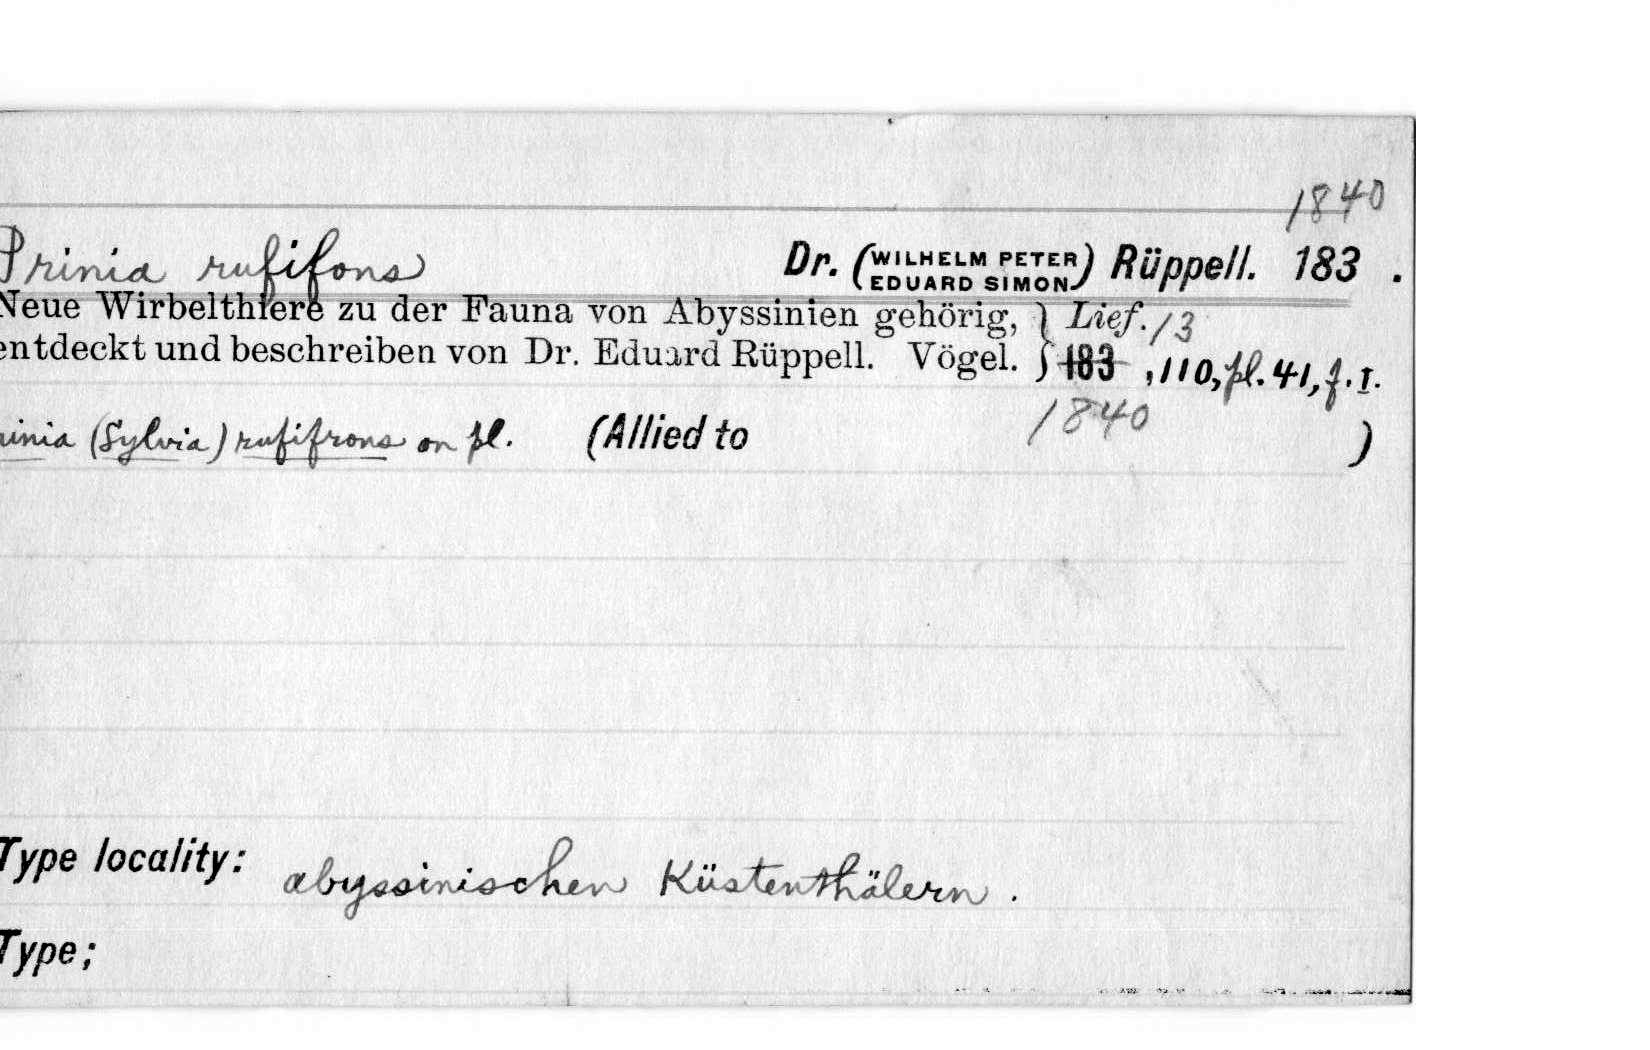 1840
Prinia rufifons Dr. (WILHELM PETER EDUARD SIMON) Rüppell. 183 .
Neue Wirbelthiere zu der Fauna von Abyssinien gehörig, } Lief. 13
entdeckt und beschreiben von Dr. Eduard Rüppell. Vögel. } 183 , 110, pl. 41, f. I.
1840
inia (Sylvia) rufifrons on pl. (Allied to )
Type locality: abyssinischen Küstenthälern .
Type;